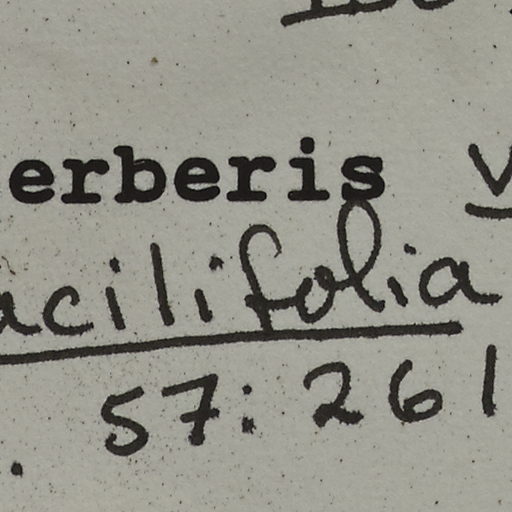 erberis
acilifolia
. 57: 261